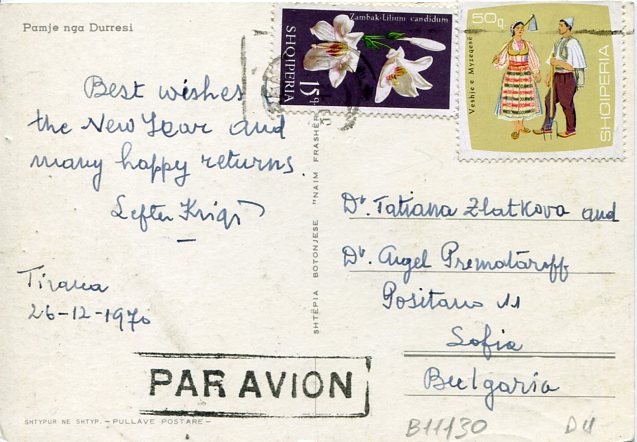 Pamje nga Durresi
Zambak-Lilium candidum
SHQIPERIA
15q
50q.
Veshje e Myzeqesë
SHQIPERIA
Best wishes
the New Year and
many happy returns.
Lefter
Tirana
26-12-1970
PAR AVION
SHTYPUR NE SHTYP. – PULLAVE POSTARE –
SHTËPIA BOTONJESE "NAIM FRASHËRI
Dr. Tatiana Zlatkova and
Dr. Angel Prematāroff
Positano 11
Sofia
Bulgaria
B11130